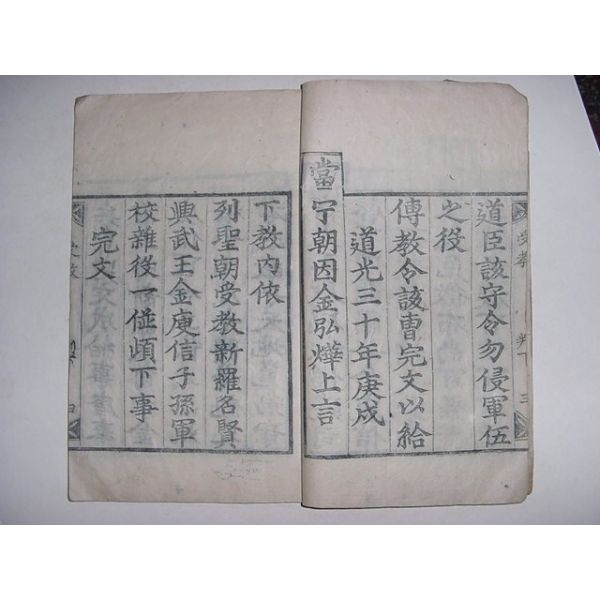 受教
三
道臣該守令勿侵軍伍
之役
傳教令該曹完文以給
道光三十年庚戌
當宁朝因金弘燁上言
下教內依
列聖朝受教新羅名賢
興武王金庾信子孫軍
校雜役一倂頉下事
完文
四